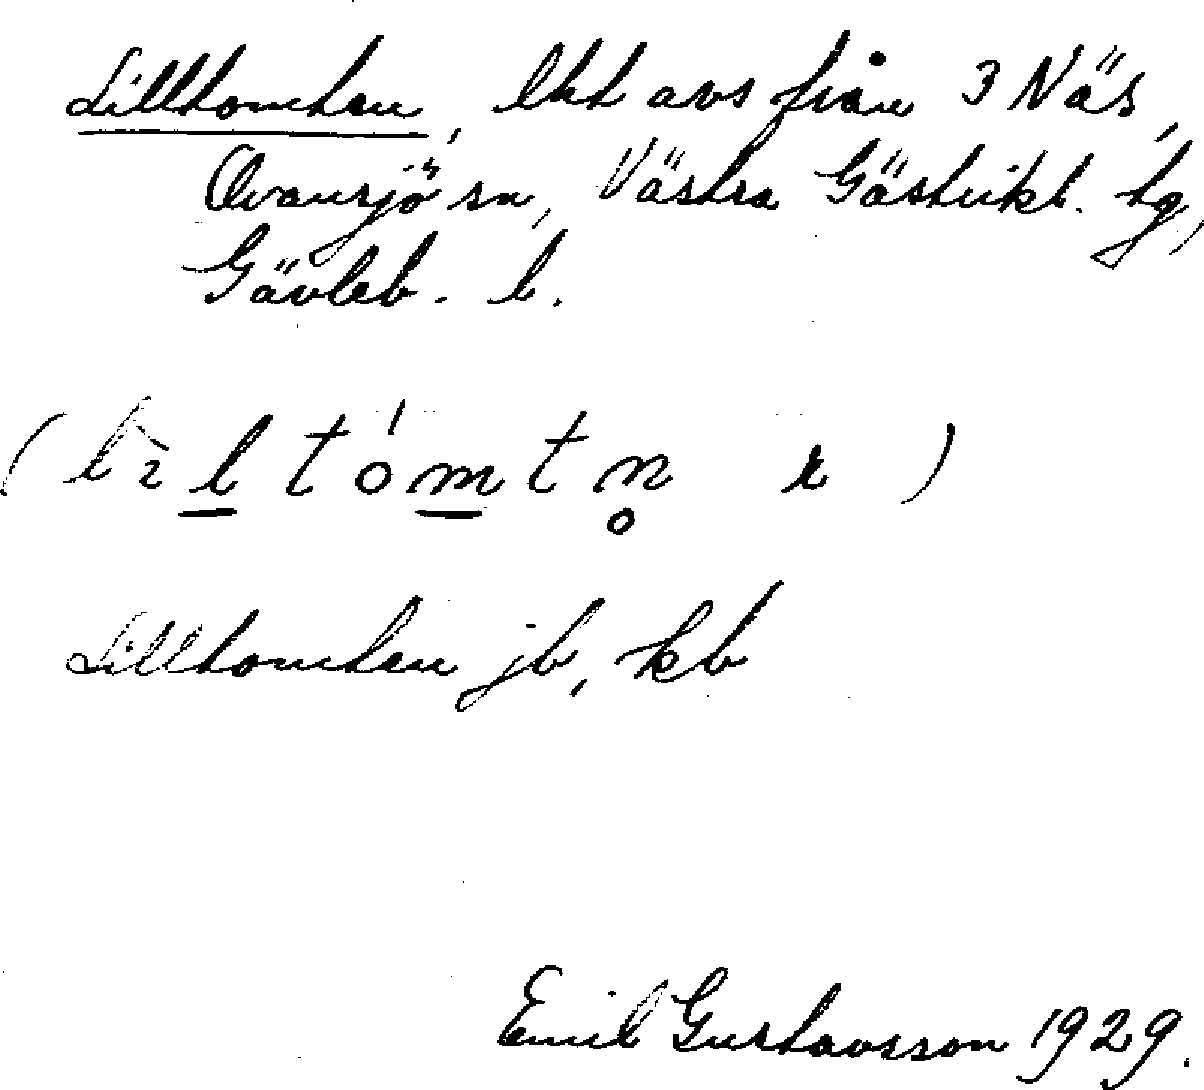 Lilltomten, lht avs från 3 Näs,
Ovansjö sn, Västra Gästrikl. tg,
Gävleb. l.
(lɩl̲tóm̲tn̥ r)
Lilltomten jb, kb
Emil Gustavsson 1929.